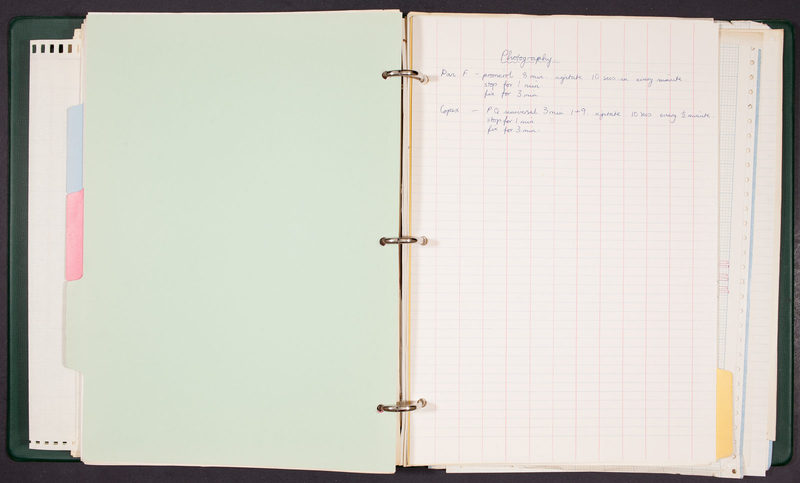 Photography
Pan F - promicrol 8 min agitate 10 secs in every minute
stop for 1 min
fix for 3 min
Copex - P.Q. universal 3 min 1+9 agitate 10 secs every ½ minute
stop for 1 min
fix for 3 min